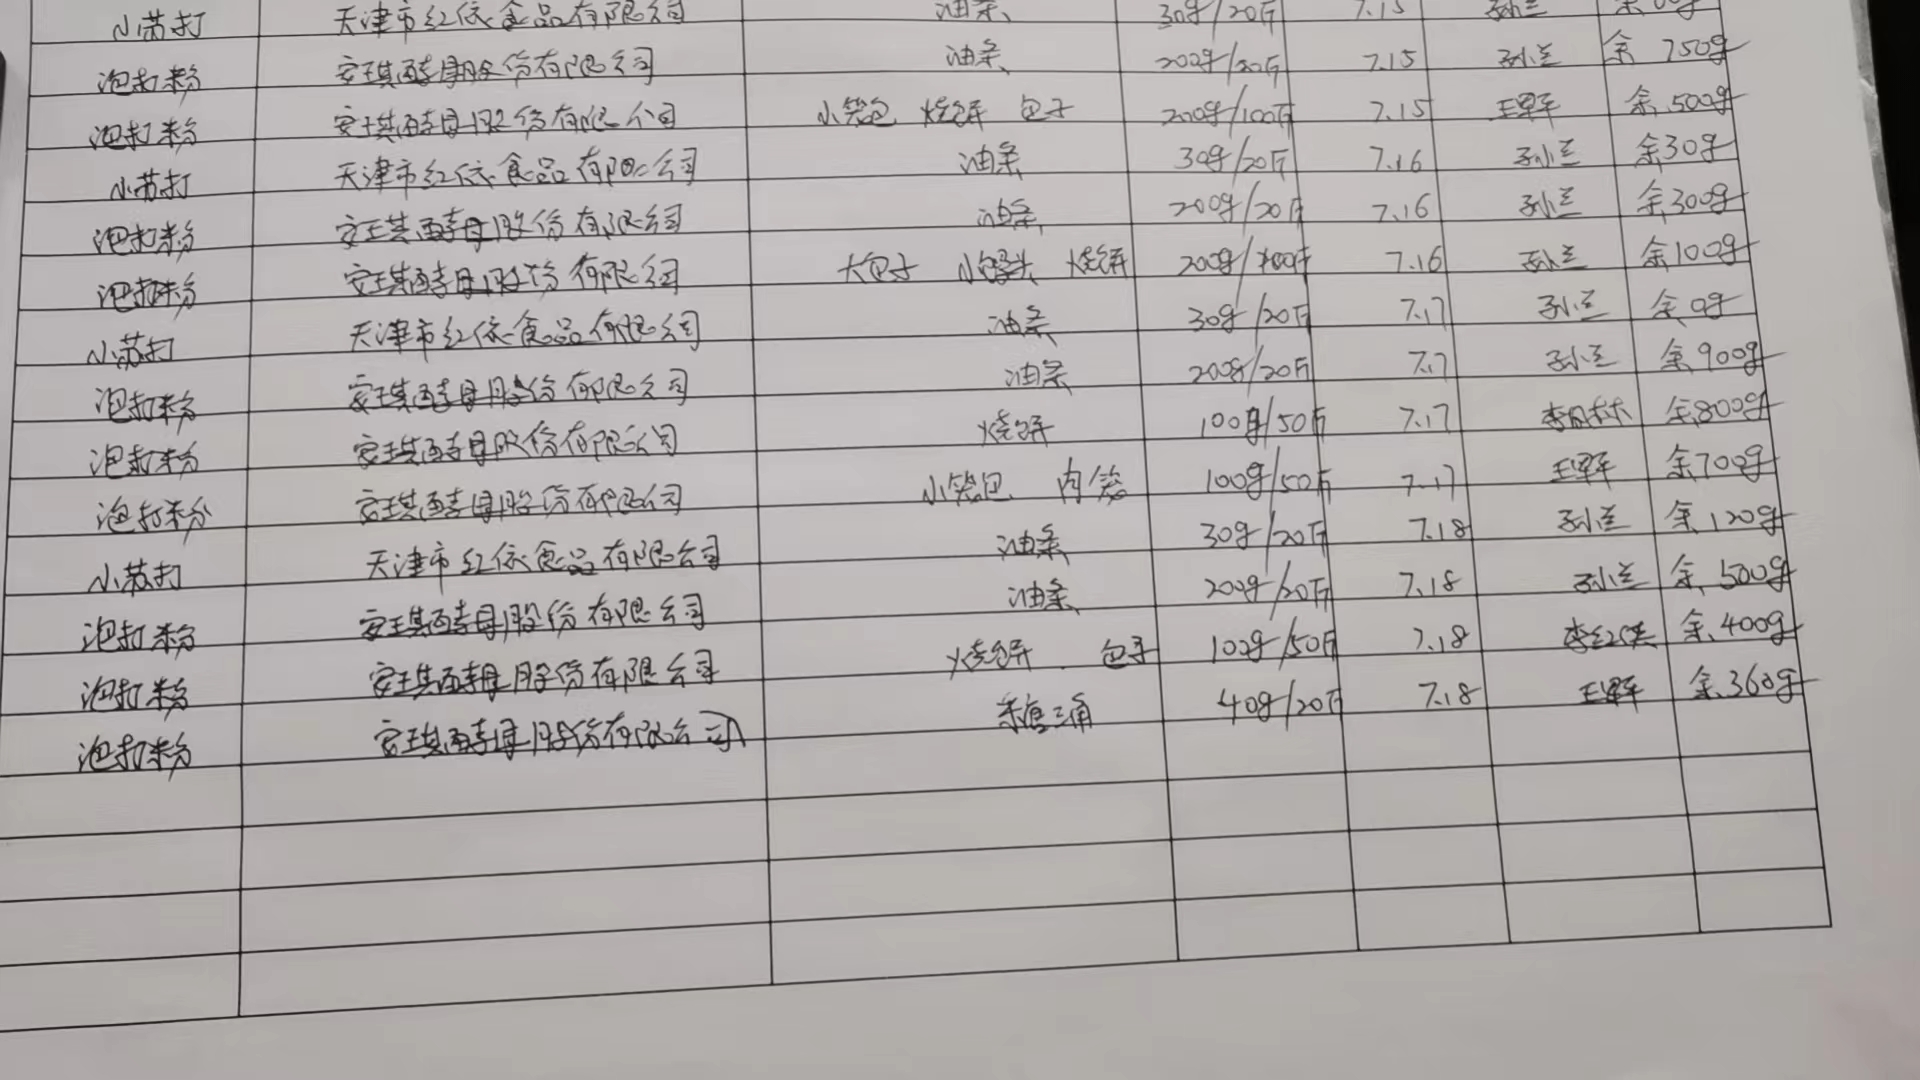 小苏打 天津市红依食品有限公司 油条 30g/20斤 7.15 孙兰
泡打粉 安琪酵母股份有限公司 油条 200g/20斤 7.15 孙兰 余 750g
泡打粉 安琪酵母股份有限公司 小笼包 烧饼 包子 200g/100斤 7.15 余 500g
小苏打 天津市红依食品有限公司 油条 30g/20斤 7.16 孙兰 余30g
泡打粉 安琪酵母股份有限公司 油条 200g/20斤 7.16 孙兰 余300g
泡打粉 安琪酵母股份有限公司 大包子 小馒头 烧饼 200g/100斤 7.16 孙兰 余100g
小苏打 天津市红依食品有限公司 油条 30g/20斤 7.17 孙兰 余0g
泡打粉 安琪酵母股份有限公司 油条 200g/20斤 7.17 孙兰 余900g
泡打粉 安琪酵母股份有限公司 烧饼 100g/50斤 7.17 余800g
泡打粉 安琪酵母股份有限公司 小笼包 肉笼 100g/50斤 7.17 余700g
小苏打 天津市红依食品有限公司 油条 30g/20斤 7.18 孙兰 余120g
泡打粉 安琪酵母股份有限公司 油条 200g/20斤 7.18 孙兰 余500g
泡打粉 安琪酵母股份有限公司 烧饼 包子 100g/50斤 7.18 余400g
泡打粉 安琪酵母股份有限公司 糖三角 40g/20斤 7.18 余360g